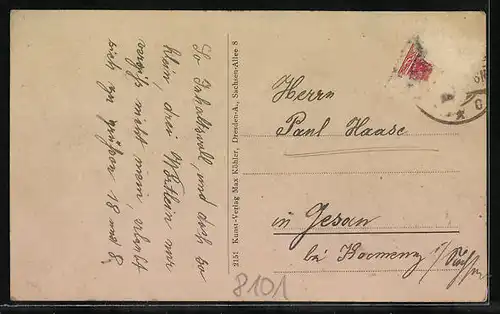 So Inhaltsvoll, und doch so
klein, drei Wörtlein nur
vergiß nicht mein erlaubt
sich zu grüßen 18 und 8,
2151 Kunst-Verlag Max Köhler, Dresden-A., Sachsen-Allee 8
Herrn
Paul Haase
in Jesau
bei Kamenz i/ Sachsen
8101